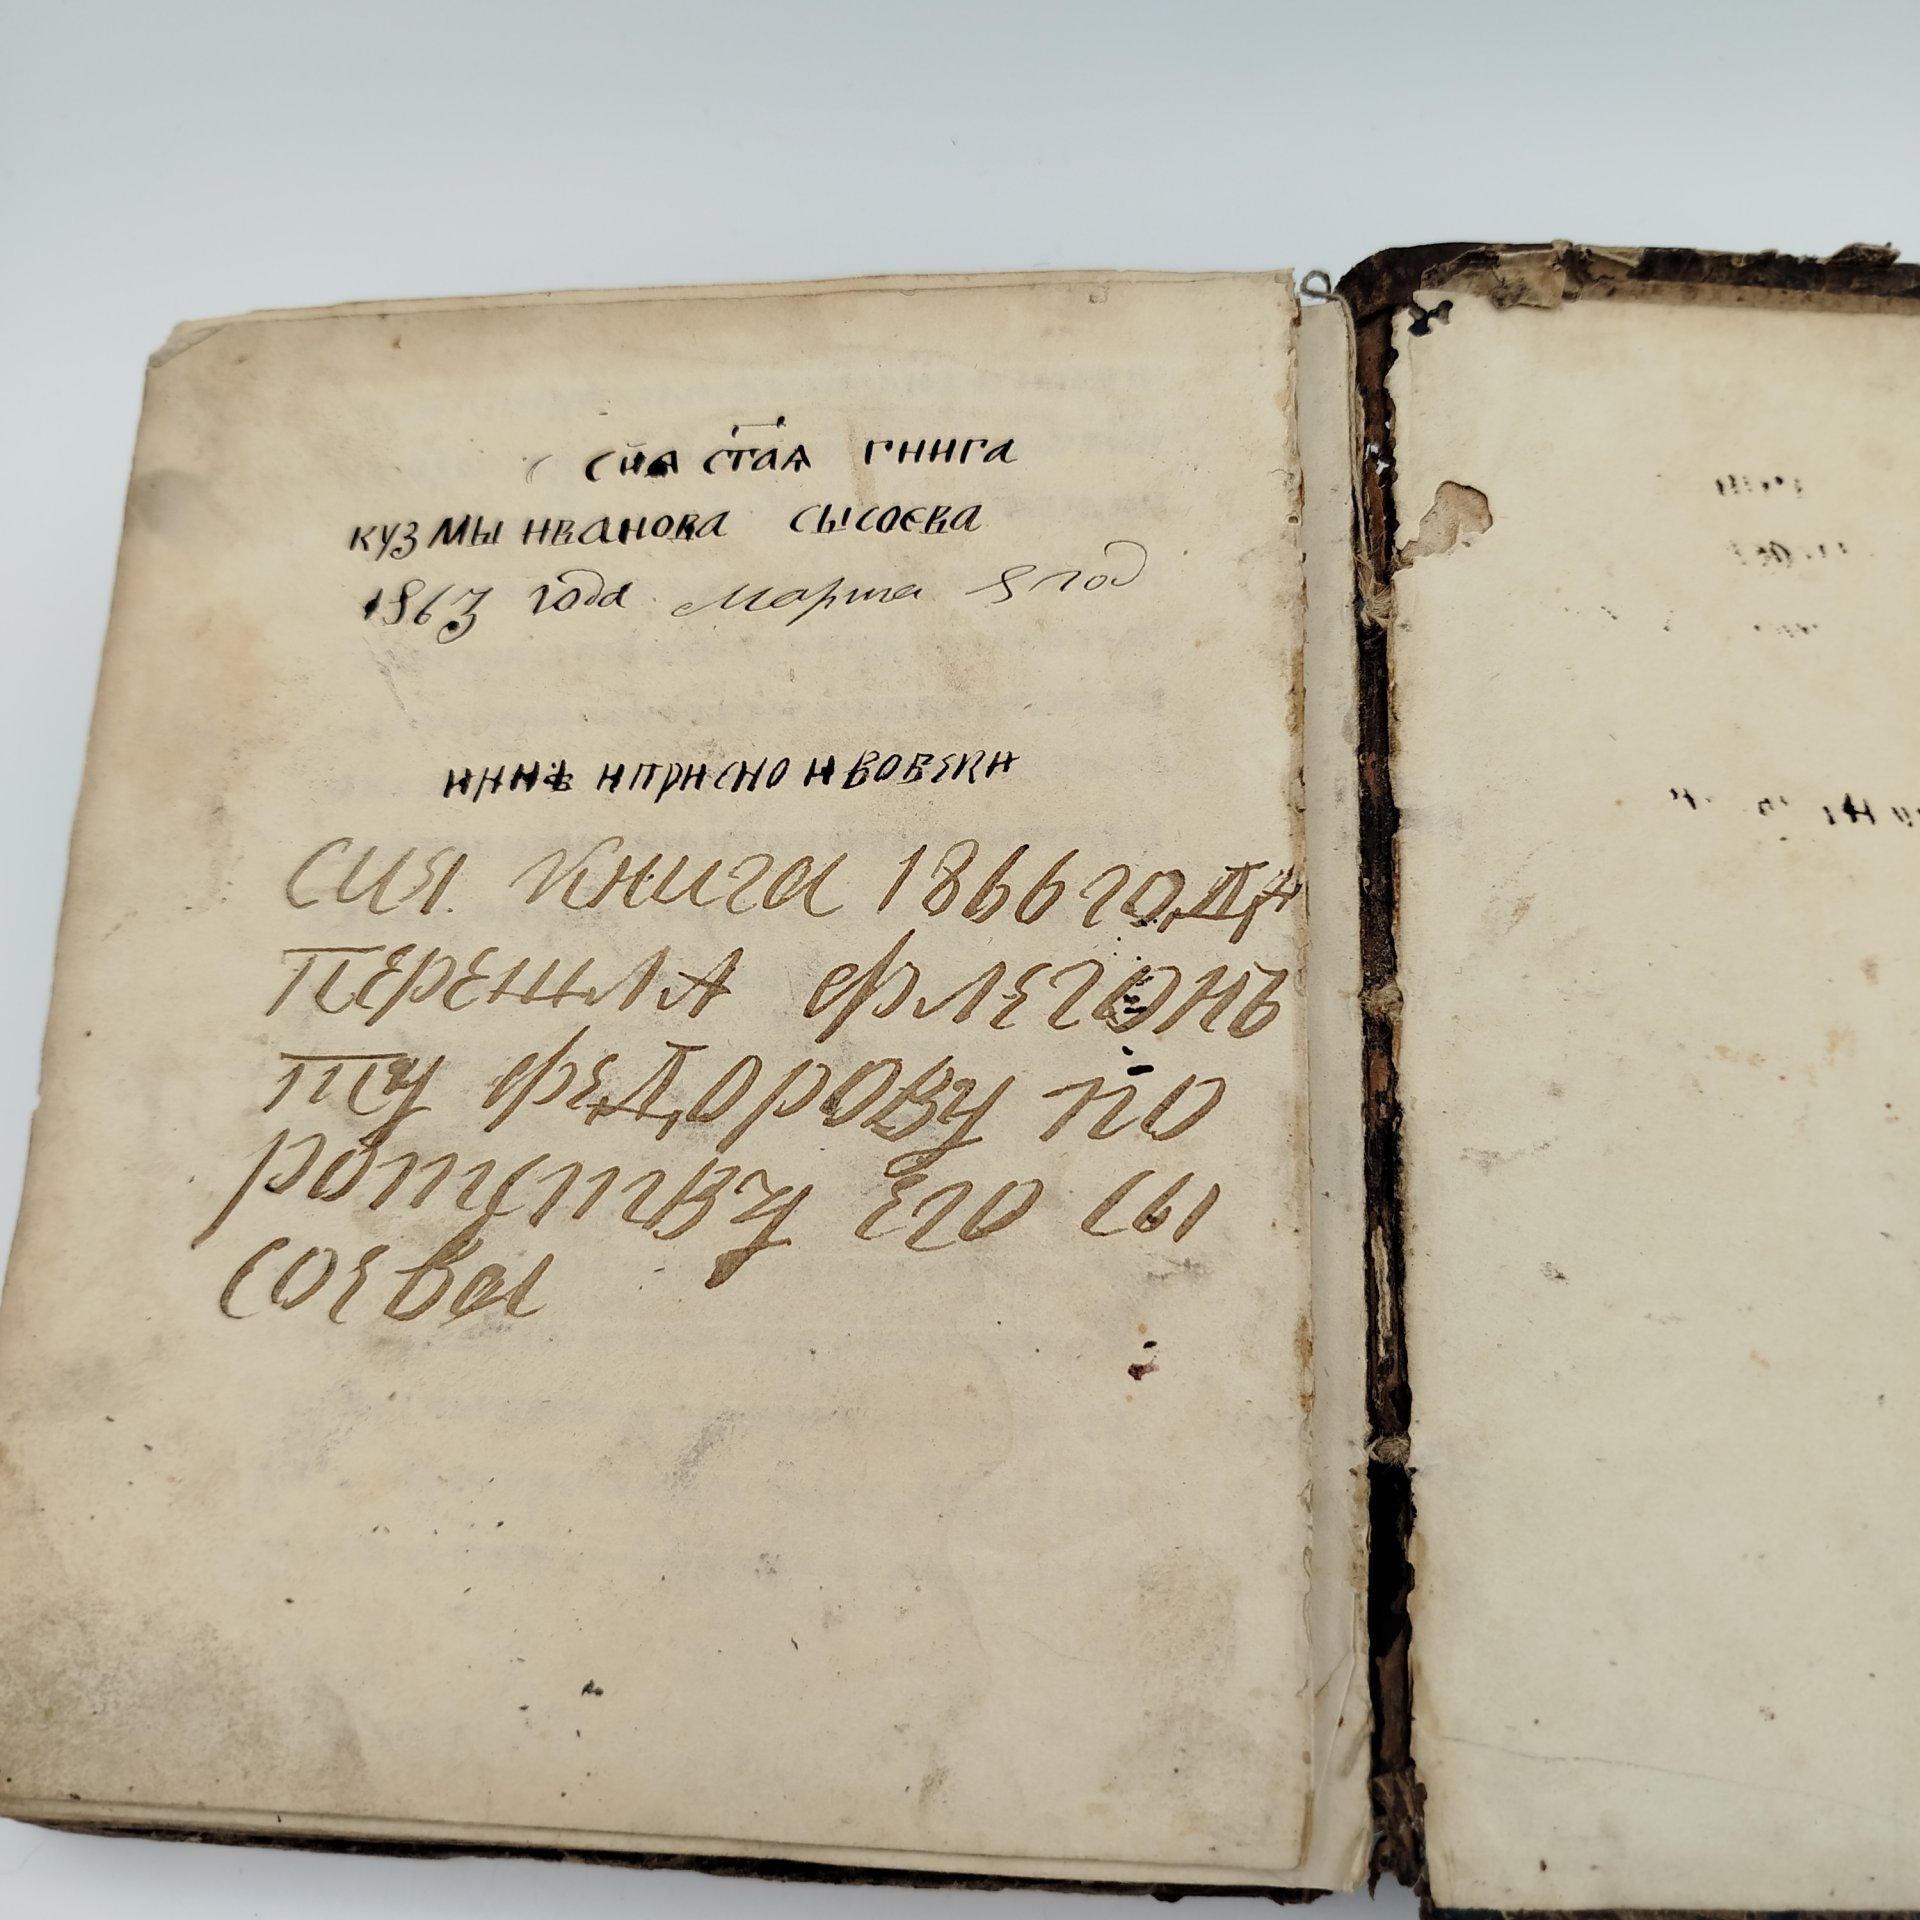 сия стая гнига
кузмы иванова сысоева
1863 года Марта 8 год
инынѣ иприсно ивовеки
сия книга 1866 года
перешла флегонъ
ту федорову по
ротству его сы
соева